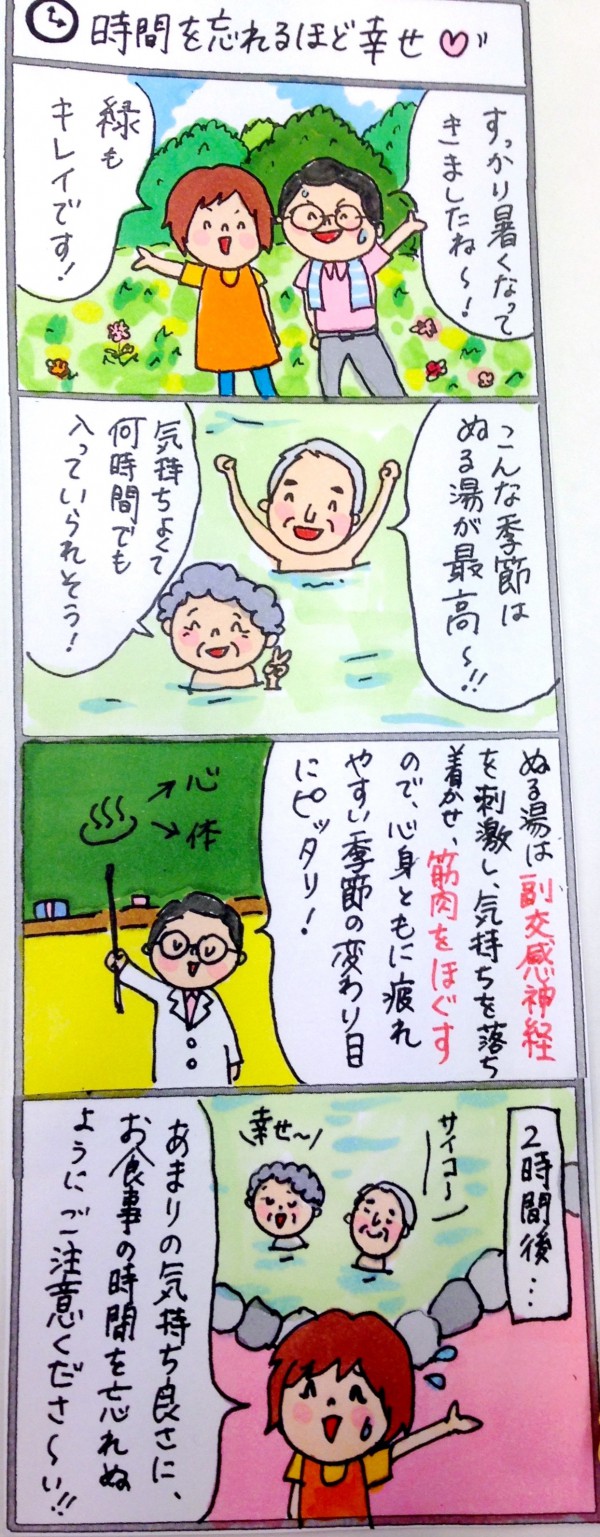 時間を忘れるほど幸せ♡
すっかり暑くなって
きましたね〜!
緑も
キレイです!
こんな季節は
ぬる湯が最高
〜!!
気持ちよくて
何時間でも
入っていられそう!
ぬる湯は副交感神経
を刺激し、気持ちを落ち
着かせ、筋肉をほぐす
ので、心身ともに疲れ
やすい季節の変わり目
にピッタリ!
心
体
2時間後…
サイコ〜
幸せ〜
あまりの気持ち良さに、
お食事の時間を忘れぬ
ようにご注意くださ〜い!!